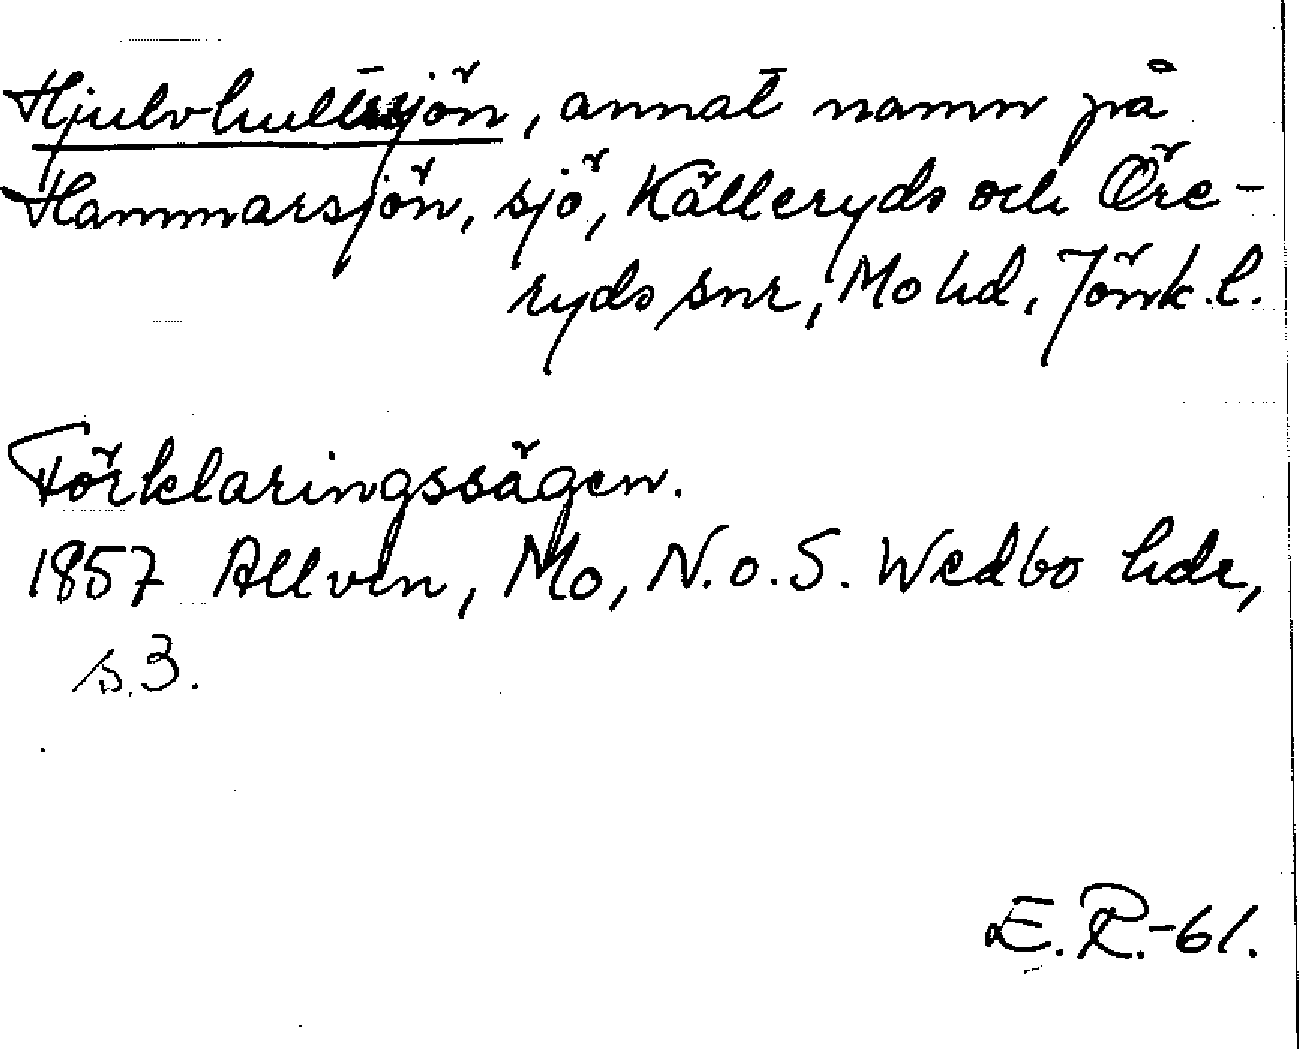 Hjulvhultssjön, annat namn på
Hammarsjön, sjö, Källeryds och Öre-
ryds snr, Mo hd, Jönk. l.
Förklaringssägen.
1857 Allvin, Mo, N. o. S. Wedbo hdr,
s. 3.
E. R.-61.